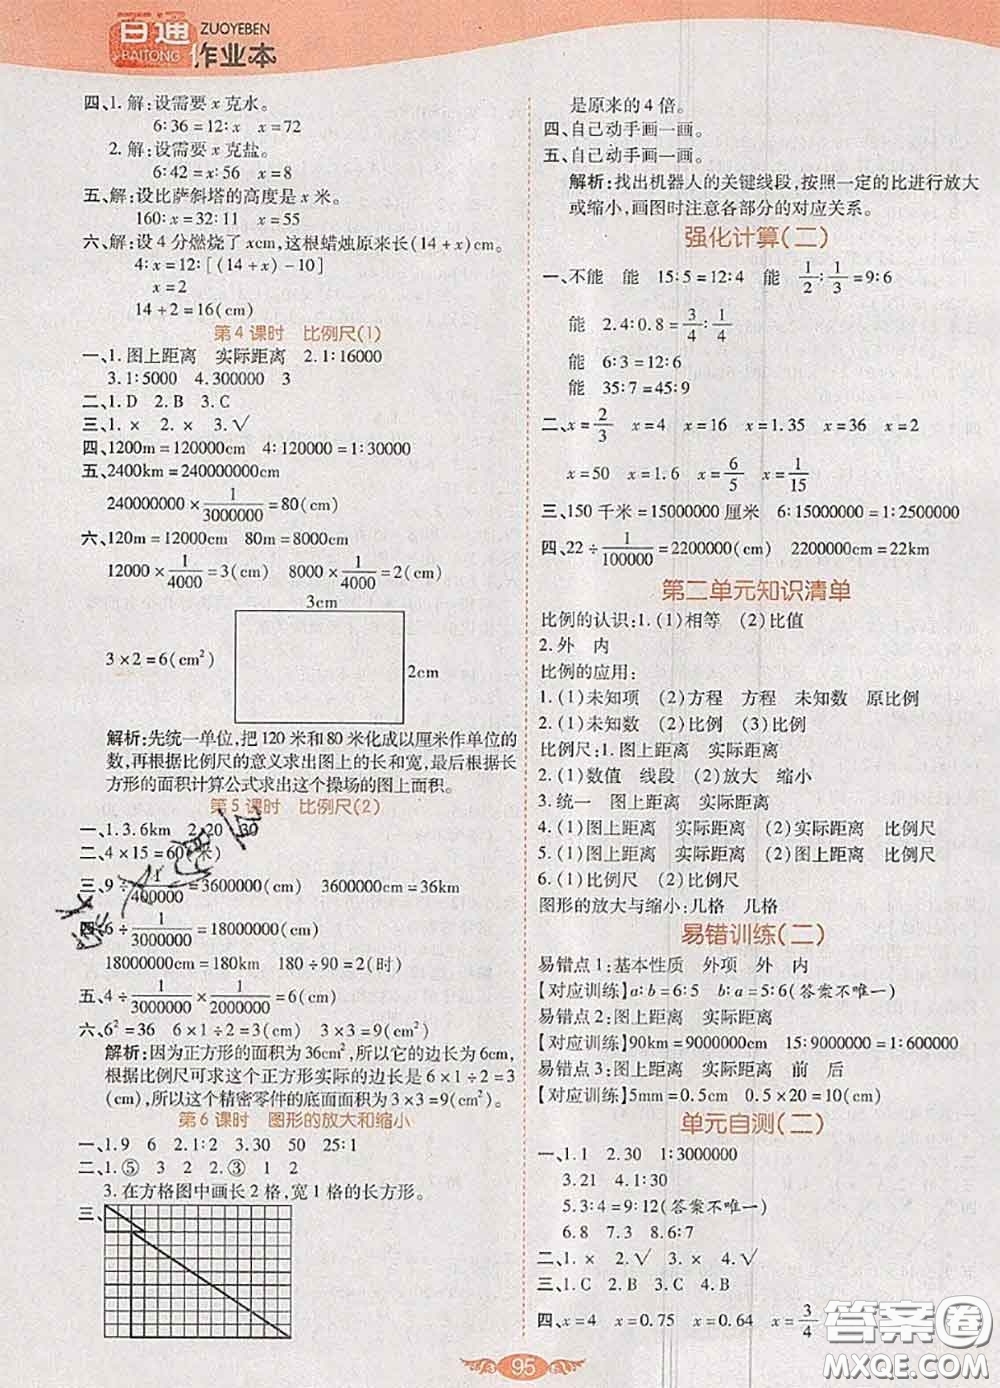 百通
BAITONG
ZUOYEBEN
作业本
四、1. 解:设需要 x 克水。
6∶36=12∶x　x=72
2. 解:设需要 x 克盐。
6∶42=x∶56　x=8
五、解:设比萨斜塔的高度是 x 米。
160∶x=32∶11　x=55
六、解:设 4 分燃烧了 xcm,这根蜡烛原来长(14+x)cm。
4∶x=12∶[(14+x)-10]
x=2
14+2=16(cm)
第 4 课时　比例尺(1)
一、1. 图上距离　实际距离　2. 1∶16000
3. 1∶5000　4. 300000　3
二、1. D　2. B　3. C
三、1. ×　2. ×　3. √
四、1200m=120000cm　4∶120000=1∶30000
五、2400km=240000000cm
240000000×1/3000000=80(cm)
六、120m=12000cm　80m=8000cm
12000×1/4000=3(cm)　8000×1/4000=2(cm)
3cm
3×2=6(cm²)
2cm
解析:先统一单位,把 120 米和 80 米化成以厘米作单位的
数,再根据比例尺的意义求出图上的长和宽,最后根据长
方形的面积计算公式求出这个操场的图上面积。
第 5 课时　比例尺(2)
一、1. 3. 6km　2. 20　30
二、4×15=60(米)
三、9÷1/400000=3600000(cm)　3600000cm=36km
四、6÷1/3000000=18000000(cm)
18000000cm=180km　180÷90=2(时)
五、4÷1/3000000×1/2000000=6(cm)
六、6²=36　6×1÷2=3(cm)　3×3=9(cm²)
解析:因为正方形的面积为36cm²,所以它的边长为6cm,
根据比例尺可求这个正方形实际的边长是 6×1÷2=3
(cm),所以这个精密零件的底面面积为 3×3=9(cm²)。
第 6 课时　图形的放大和缩小
一、1. 9　6　2. 1∶2　3. 30　50　25∶1
二、1. ⑤　3　2　2. ③　1　2
3. 在方格图中画长 2 格,宽 1 格的长方形。
三、
是原来的 4 倍。
四、自己动手画一画。
五、自己动手画一画。
解析:找出机器人的关键线段,按照一定的比进行放大
或缩小,画图时注意各部分的对应关系。
强化计算(二)
一、不能　能　15∶5=12∶4　能　1/2∶1/3=9∶6
能　2. 4∶0. 8=3/4∶1/4
能　6∶3=12∶6
能　35∶7=45∶9
二、x=2/3　x=4　x=16　x=1. 35　x=36　x=2
x=50　x=1. 6　x=6/5　x=1/15
三、150 千米=15000000 厘米　6∶15000000=1∶2500000
四、22÷1/100000=2200000(cm)　2200000cm=22km
第二单元知识清单
比例的认识:1. (1)相等　(2)比值
2. 外　内
比例的应用:
1. (1)未知项　(2)方程　方程　未知数　原比例
2. (1)未知数　(2)比例　(3)比例
比例尺:1. 图上距离　实际距离
2. (1)数值　线段　(2)放大　缩小
3. 统一　图上距离　实际距离
4. (1)图上距离　实际距离　(2)实际距离　比例尺
5. (1)图上距离　实际距离　(2)图上距离　比例尺
6. (1)比例尺　(2)比例尺
图形的放大与缩小:几格　几格
易错训练(二)
易错点 1:基本性质　外项　外　内
【对应训练】a∶b=6∶5　b∶a=5∶6(答案不唯一)
易错点 2:图上距离　实际距离
【对应训练】90km=9000000cm　15∶9000000=1∶600000
易错点 3:图上距离　实际距离　前　后
【对应训练】5mm=0. 5cm　0. 5×20=10(cm)
单元自测(二)
一、1. 1　2. 1∶3000000
3. 21　4. 1∶30
5. 3∶4=9∶12(答案不唯一)
6. 8　7. 3　8. 6∶7
二、1. ×　2. √　3. ×　4. √
三、1. C　2. B　3. C　4. B
四、x=4　x=0. 75　x=0. 64　x=3/4
95
答案圈
MXQE.COM